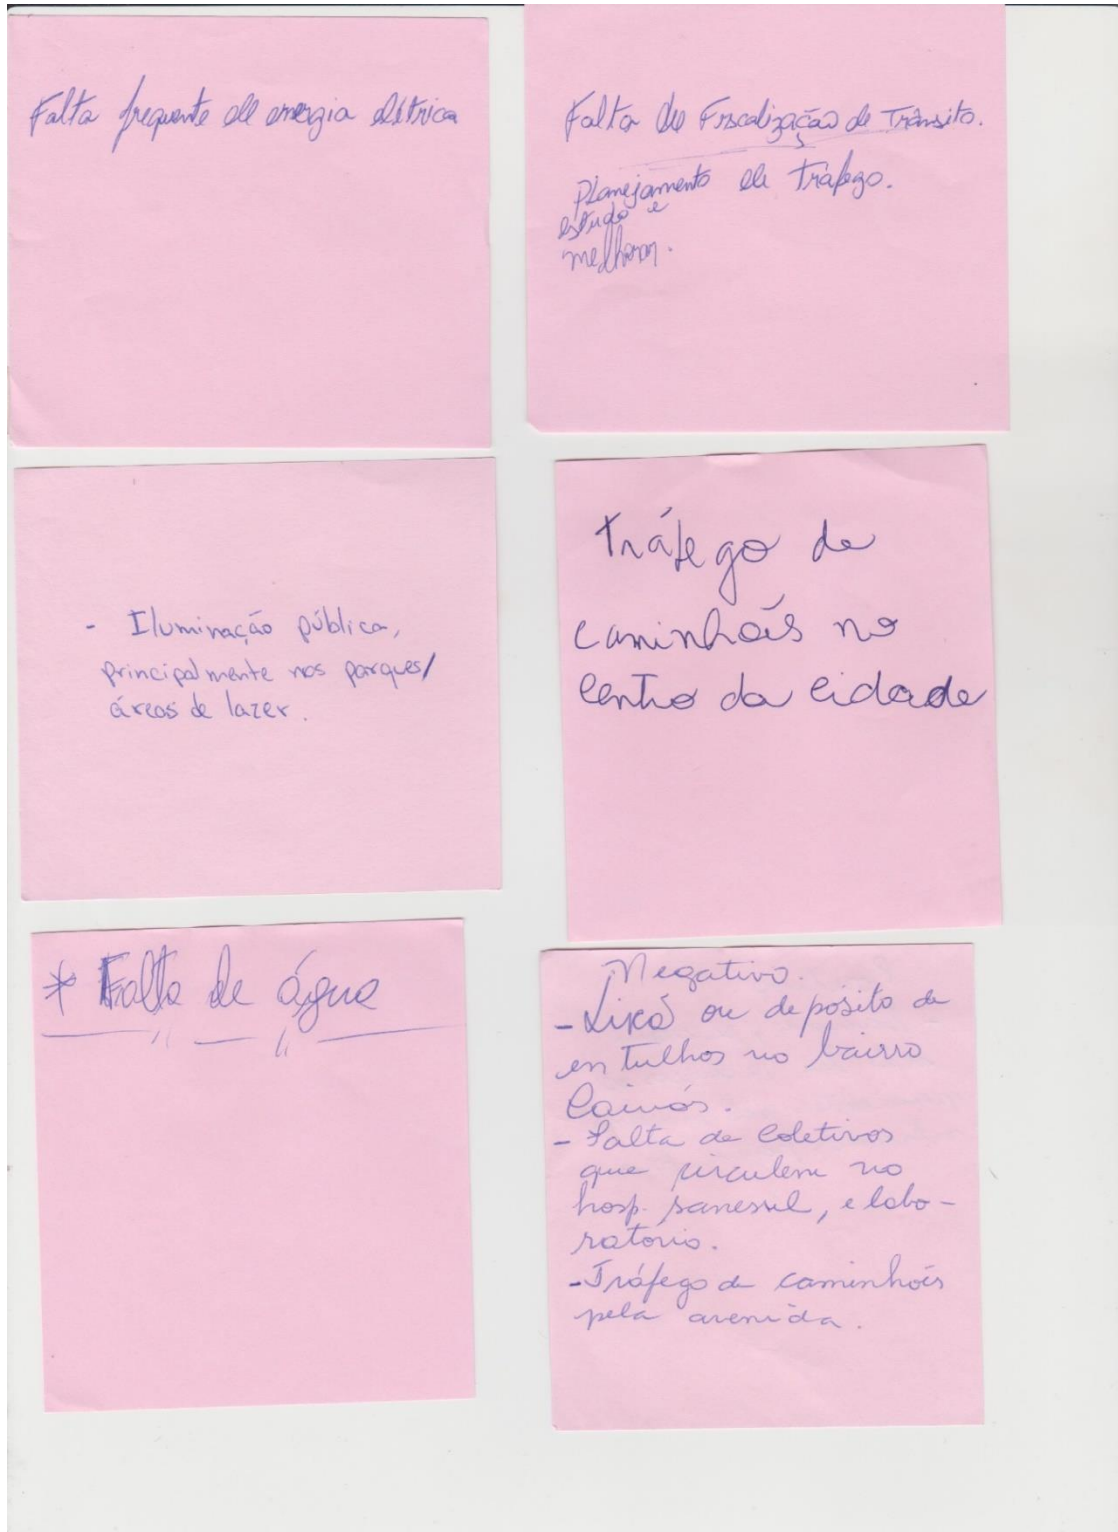 Falta frequente de energia elétrica
Falta de Fiscalização de Trânsito.
Planejamento de Tráfego.
estudo e
melhorar.
- Iluminação pública,
principalmente nos parques/
áreas de lazer.
Tráfego de
caminhões no
centro da cidade
* Falta de água
Negativo.
- Lixão ou depósito de
entulhos no bairro
- Falta de coletivos
que circulem no
hosp. sanessul, e labo-
ratório.
- Tráfego de caminhões
pela avenida.